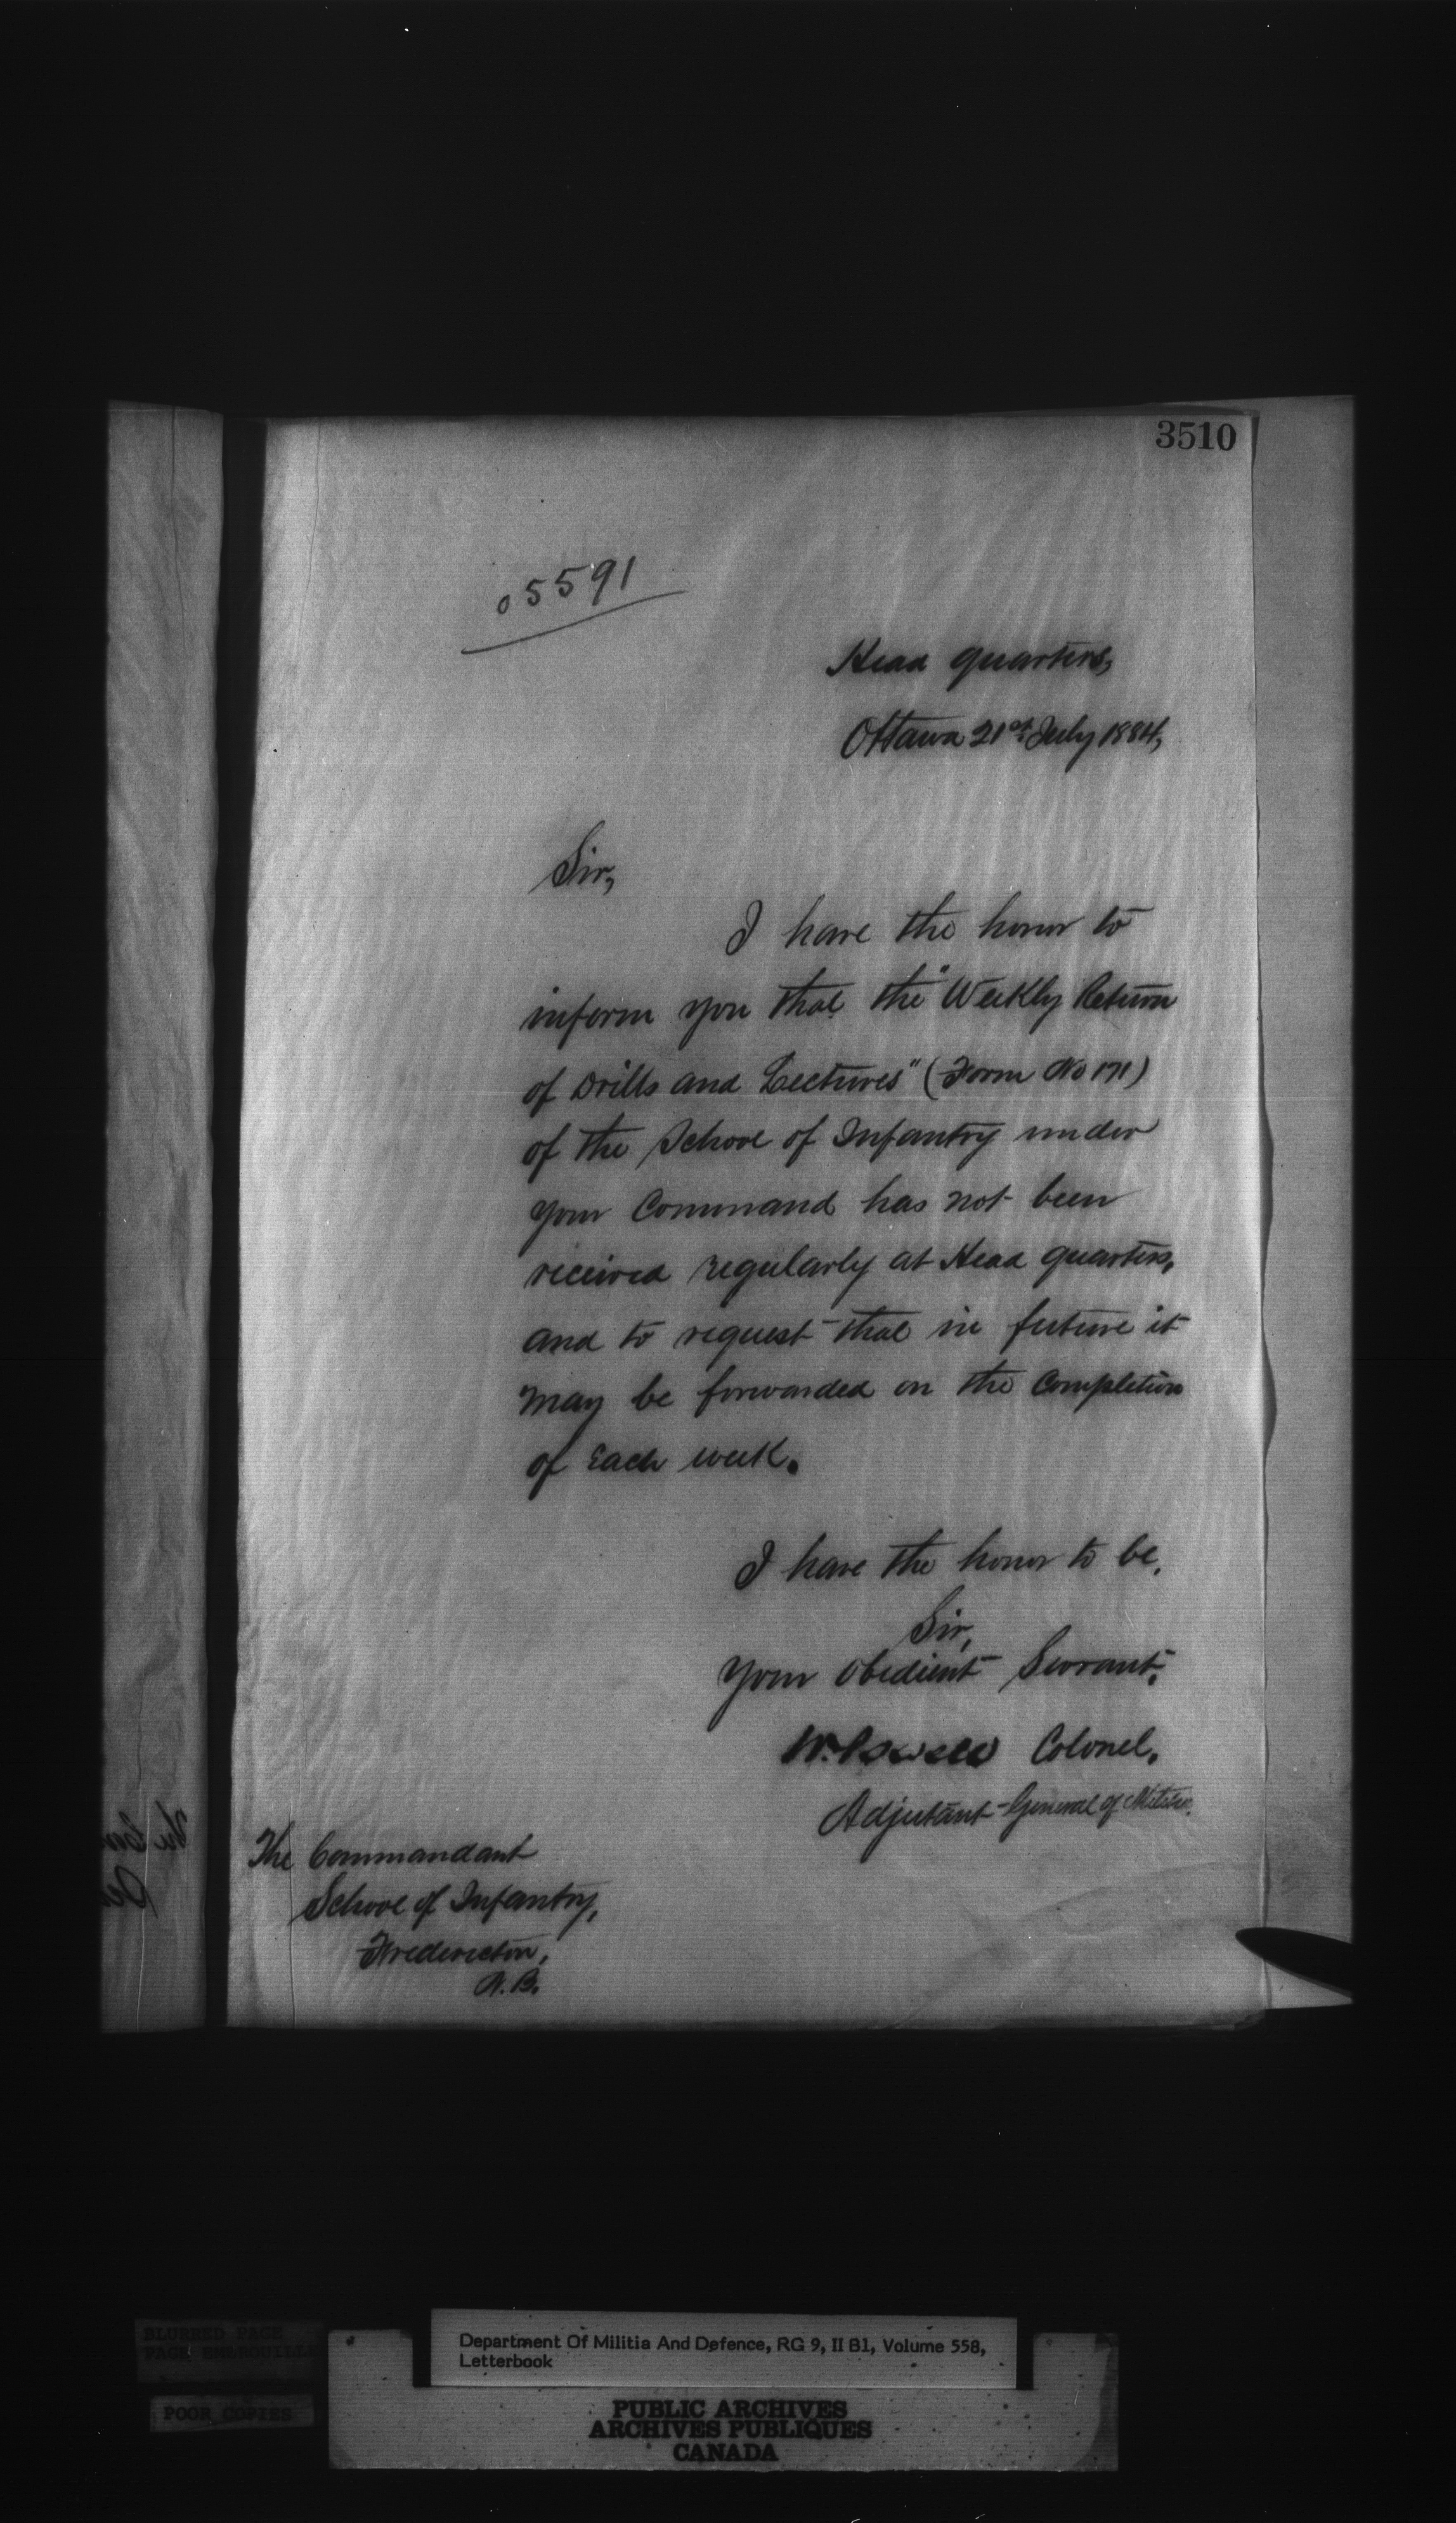 3510
05591
Head quarters,
Ottawa 21st July 1884,
Sir,
I have the honor to
inform you that the "Weekly Return
of Drills and Lectures" (Form No 171)
of the School of Infantry under
your Command has not been
received regularly at Head quarters,
and to request that in future it
may be forwarded on the Completion
of Each week.
I have the honor to be,
Sir,
Your Obedient Servant,
W. Powell Colonel.
Adjutant-General of Militia.
The Commandant
School of Infantry,
Fredericton,
N.B.
BLURRED PAGE
PAGE EMBROUILLEE
POOR COPIES
Department Of Militia And Defence, RG 9, II B1, Volume 558,
Letterbook
PUBLIC ARCHIVES
ARCHIVES PUBLIQUES
CANADA